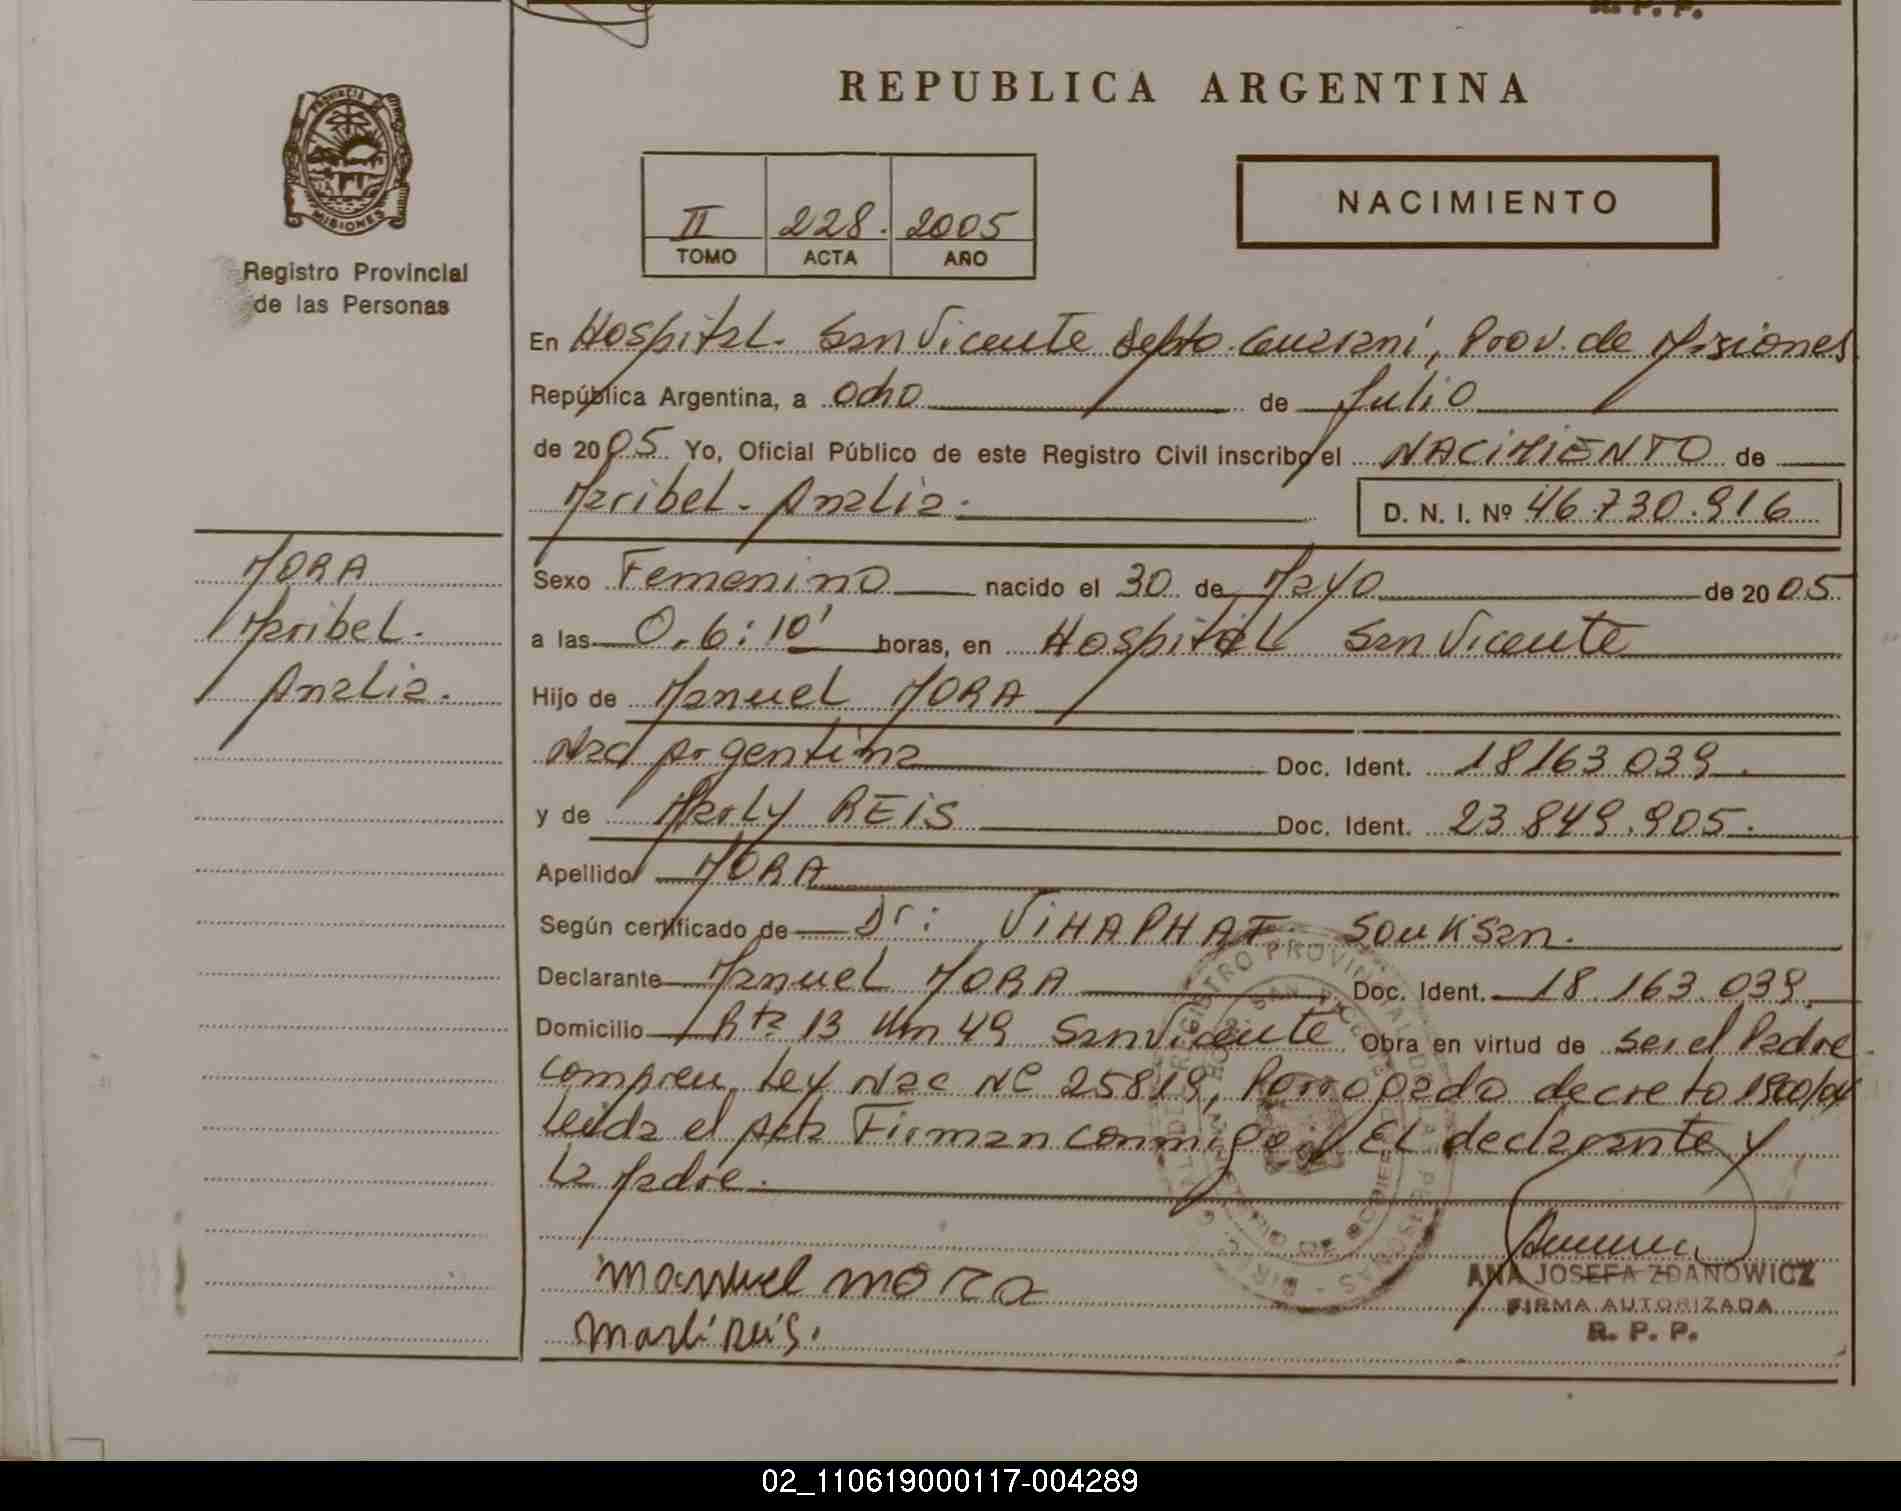 R. P. P.
REPUBLICA ARGENTINA
PROVINCIA DE
MISIONES
Registro Provincial
de las Personas
II 228. 2005
TOMO ACTA AÑO
NACIMIENTO
En Hospital. San Vicente Depto. Guaraní, Prov. de Misiones
República Argentina, a ocho de Julio
de 2005 Yo, Oficial Público de este Registro Civil inscribo el NACIMIENTO de
Maribel. Analia. D. N. I. Nº 46.730.916
MORA
Maribel.
Analia.
Sexo Femenino nacido el 30 de Mayo de 2005
a las 0.6:10' horas, en Hospital San Vicente
Hijo de Manuel MORA
Nac Argentina Doc. Ident. 18163039.
y de Marly REIS Doc. Ident. 23.849.905.
Apellido MORA
Según certificado de Dr: VIHAPHAT Souksan.
Declarante Manuel MORA Doc. Ident. 18.163.039.
Domicilio Rta 13 Km 49 San Vicente Obra en virtud de ser el Padre
compren. Ley Nac Nº 25819, Porrogado decreto 1900/04
Leida el Acta Firman conmigo: EL declarante y
La Madre.
manuel mora
marli reis.
ANA JOSEFA ZDANOWICZ
FIRMA AUTORIZADA
R. P. P.
02_110619000117-004289